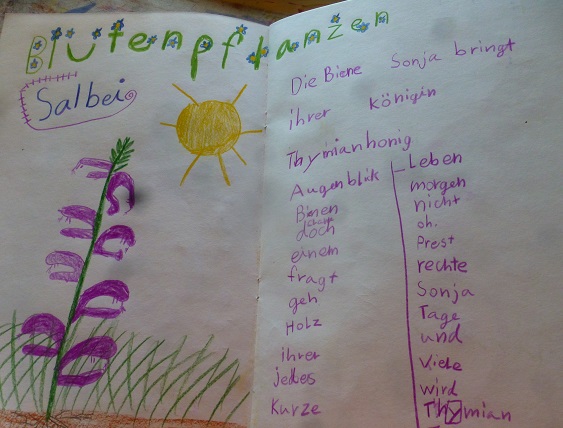 Blütenpflanzen
Salbei
Die Biene Sonja bringt
ihrer königin
Thymianhonig
Augenblik
Bienen
doch
einem
fragt
geh
Holz
ihrer
jedes
Kurze
Leben
morgen
nicht
oh.
Prest
rechte
Sonja
Tage
und
Viele
wird
Thymian